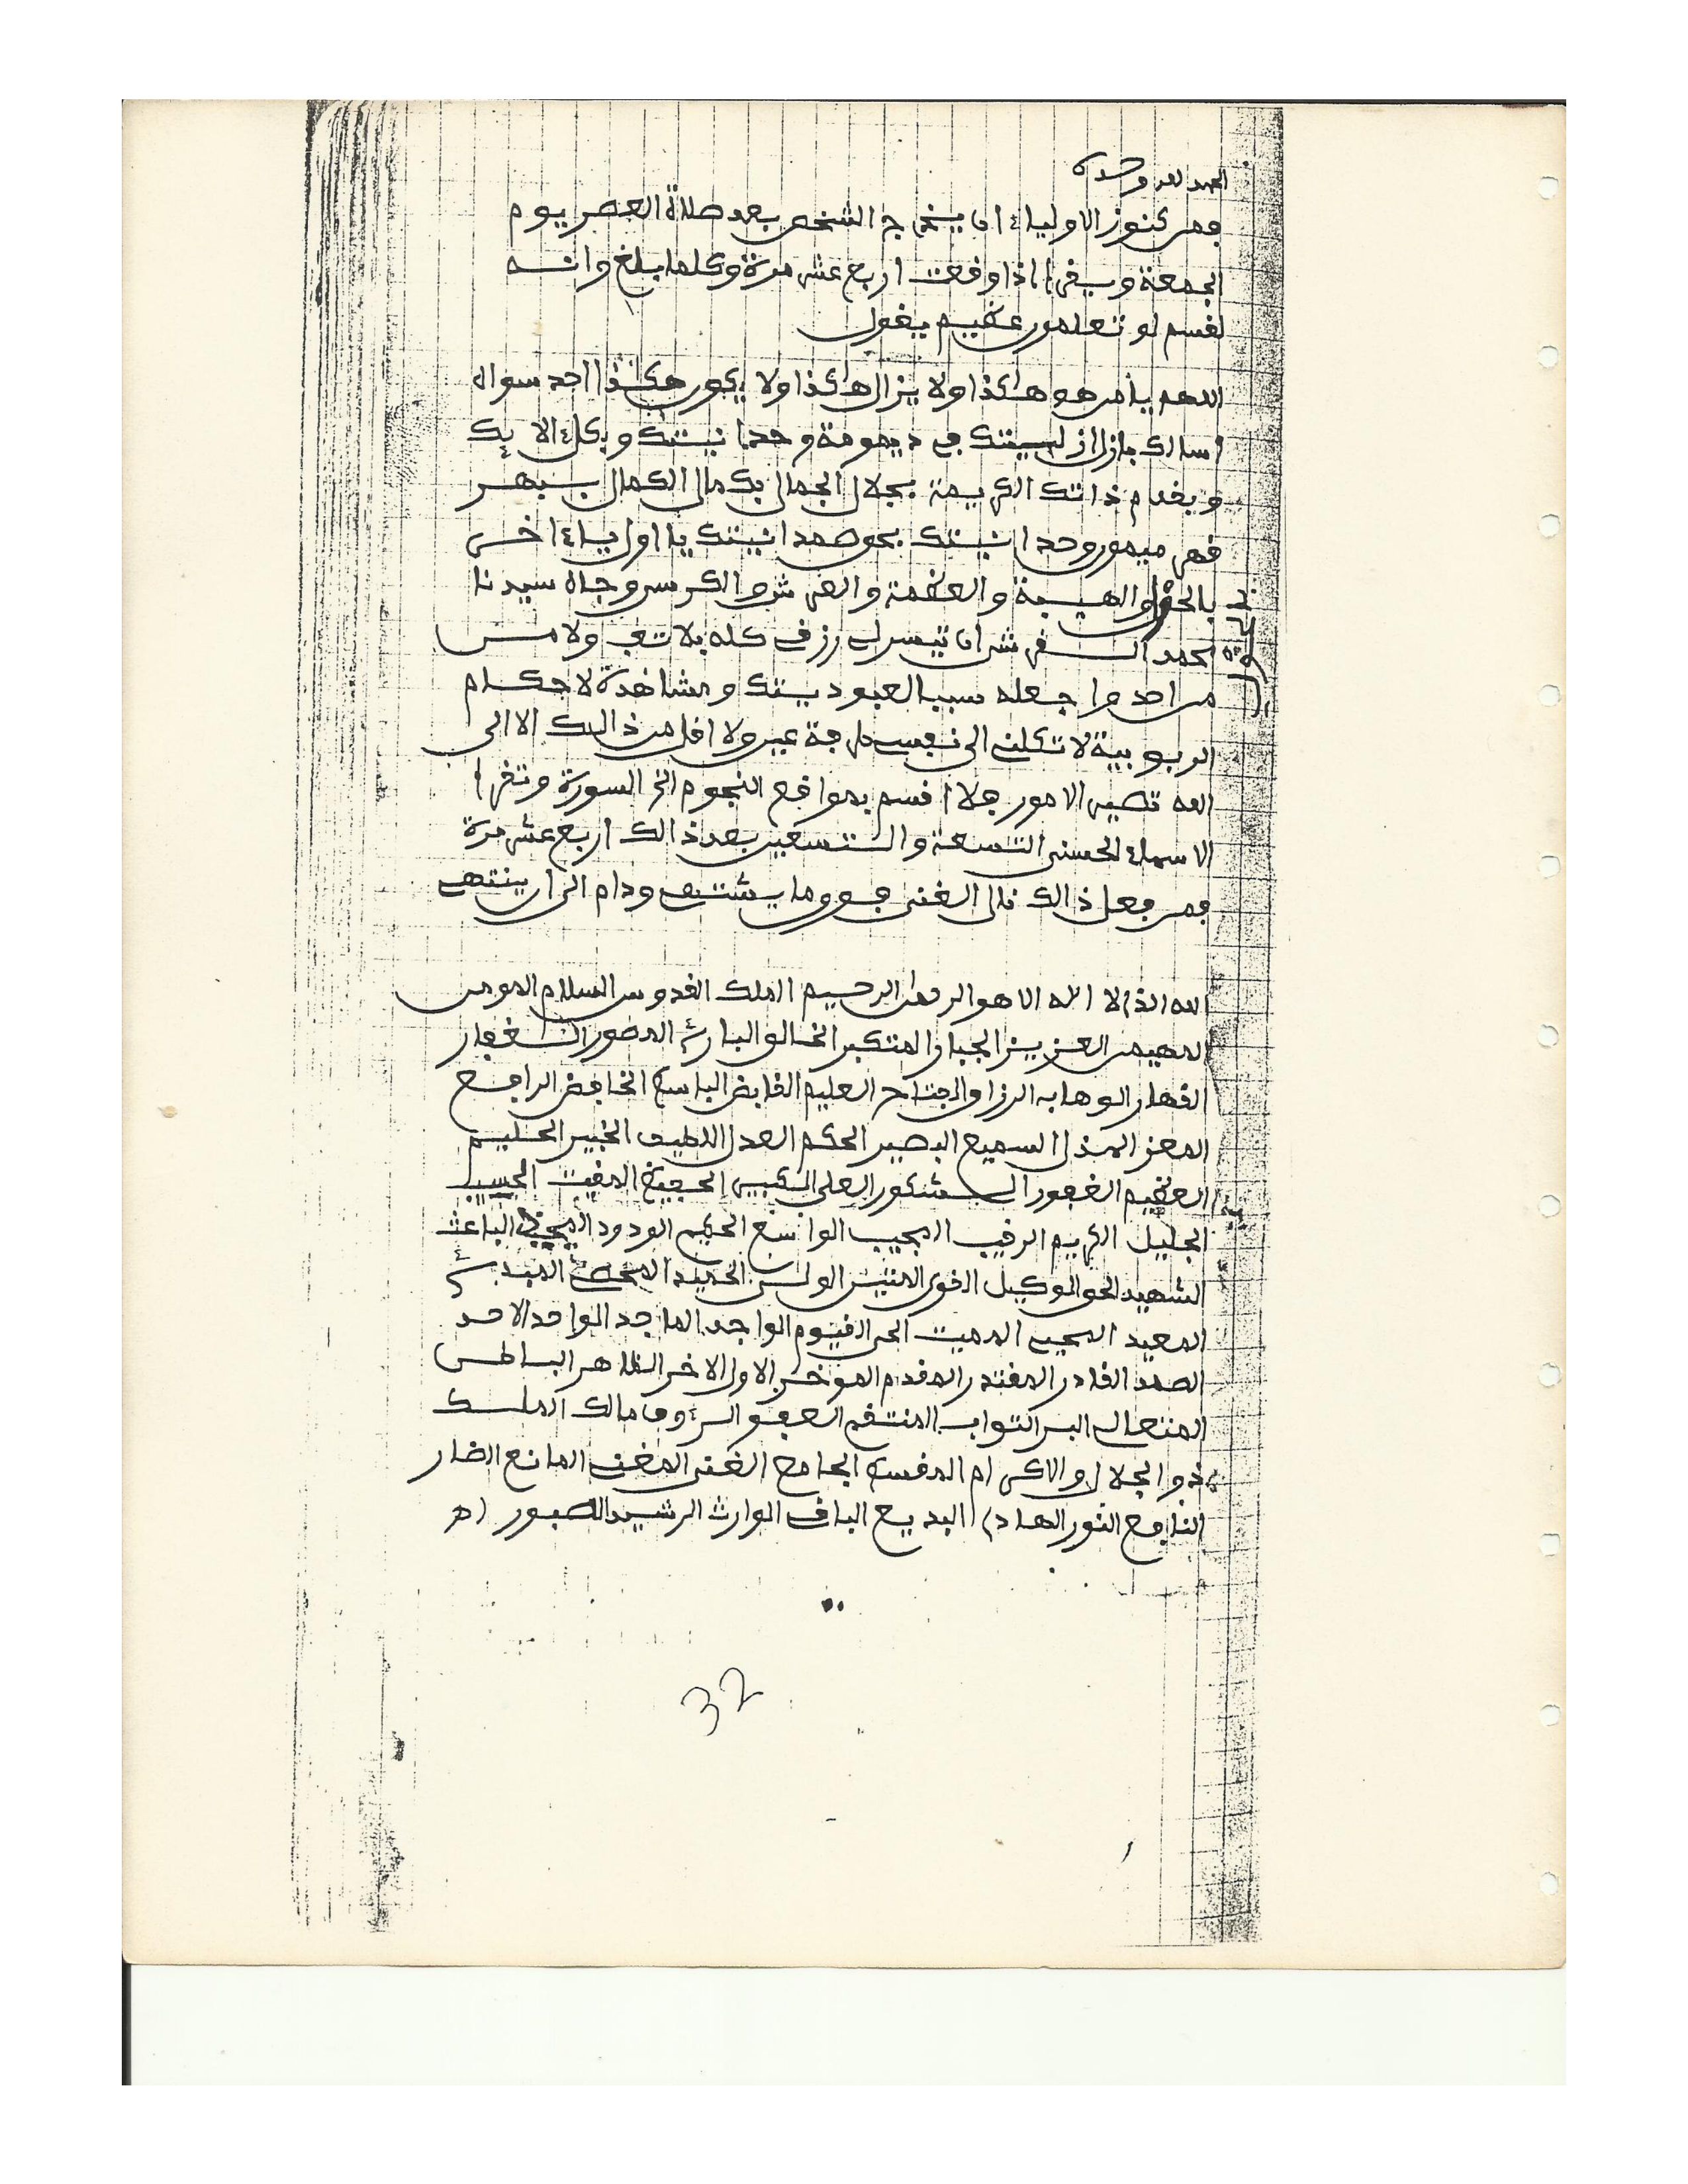 الحمد لله وحده
فمن كنوز الاولياء ان يخرج الشخص بعد صلاة العصر يوم
الجمعة ويقرأ اذا وقعت اربع عشر مرة وكلما بلغ وانه
لقسم لو تعلمون عظيم يقول
اللهم يا من هو هاكذا ولا يزال هاكذا ولا يكون هكذا احد سواه
اسالك بازل ازليتك في ديمومة وحدانيتك وبكل الايك
وبقدم ذاتك الكريمة بجلال الجمال بكمال الكمال
قهر ميمون وحدانيتك بحق صمدانيتك يا اول يا ءاخر
بالحول والهيبة والعظمة والعرش والكرسي وجاه سيدنا
محمد القرشي ان تيسر لي رزقي كله بلا تعب ولا من
من احد واجعله سببا لعبوديتك ومشاهدة لاحكام
الربوبية لا تكلني الى نفسي طرفة عين ولا اقل من ذالك الا الى
الله تصير الامور فلا اقسم بمواقع النجوم الخ السورة وتقرأ
الاسماء الحسنى التسعة والتسعين بعد ذالك اربع عشر مرة
فمن فعل ذالك نال الغنى فوق ما يشتهي ودام الى ان ينتهي
الله الذي لا اله الا هو الرحمان الرحيم الملك القدوس السلام المومن
المهيمن العزيز الجبار المتكبر الخالق البارئ المصور الغفار
القهار الوهاب الرزاق الفتاح العليم القابض الباسط الخافض الرافع
المعز المذل السميع البصير الحكم العدل اللطيف الخبير الحليم
العظيم الغفور الشكور العلي الكبير الحفيظ المقيت الحسيب
الجليل الكريم الرقيب المجيب الواسع الحكيم الودود المجيد الباعث
الشهيد الحق الوكيل القوي المتين الولي الحميد المحصي المبدئ
المعيد المحيي المميت الحي القيوم الواجد الماجد الواحد الاحد
الصمد القادر المقتدر المقدم الموخر الاول الاخر الظاهر الباطن
المتعالي البر التواب المنتقم العفو الرءوف مالك الملك
ذو الجلال والاكرام المقسط الجامع الغني المغني المانع الضار
النافع النور الهادي البديع الباقي الوارث الرشيد الصبور اه
32